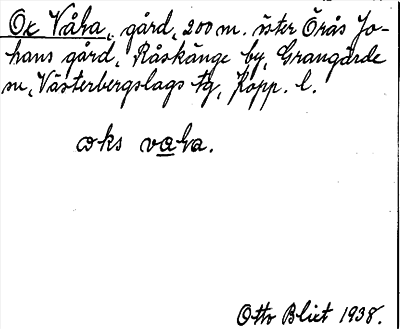 Ox Våha, gård, 200 m. öster Örås Jo-
hans gård, Råskänge by, Grangärde
sn, Västerbergslags tg, Kopp. l.
oks vaha.
Otto Blixt 1938.